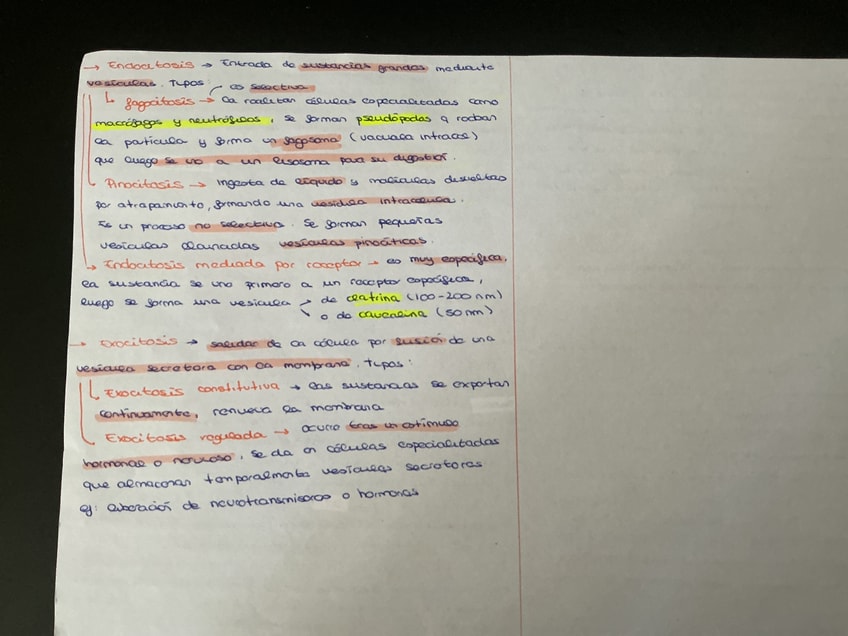 → Endocitosis → Entrada de sustancias grandes mediante
vesículas. Tipos: es selectiva
↳ fagocitosis → La realizan células especializadas como
macrófagos y neutrófilos, se forman pseudópodos q rodean
la partícula y forma un fagosoma (vacuola intracel)
que luego se une a un lisosoma para su digestión.
Pinocitosis → Ingesta de líquido y moléculas disueltas
por atrapamiento, formando una vesícula intracelular.
Es un proceso no selectivo. Se forman pequeñas
vesículas llamadas vesículas pinocíticas.
→ Endocitosis mediada por receptor → es muy específica,
la sustancia se une primero a un receptor específico,
luego se forma una vesícula → de clatrina (100-200 nm)
↘ o de caveolina (50 nm)
→ Exocitosis → salidas de la célula por fusión de una
vesícula secretora con la membrana. Tipos:
↳ Exocitosis constitutiva → las sustancias se exportan
continuamente, renueva la membrana
Exocitosis regulada → ocurre tras un estímulo
hormonal o nervioso, se da en células especializadas
que almacenan temporalmente vesículas secretoras
ej: liberación de neurotransmisores o hormonas